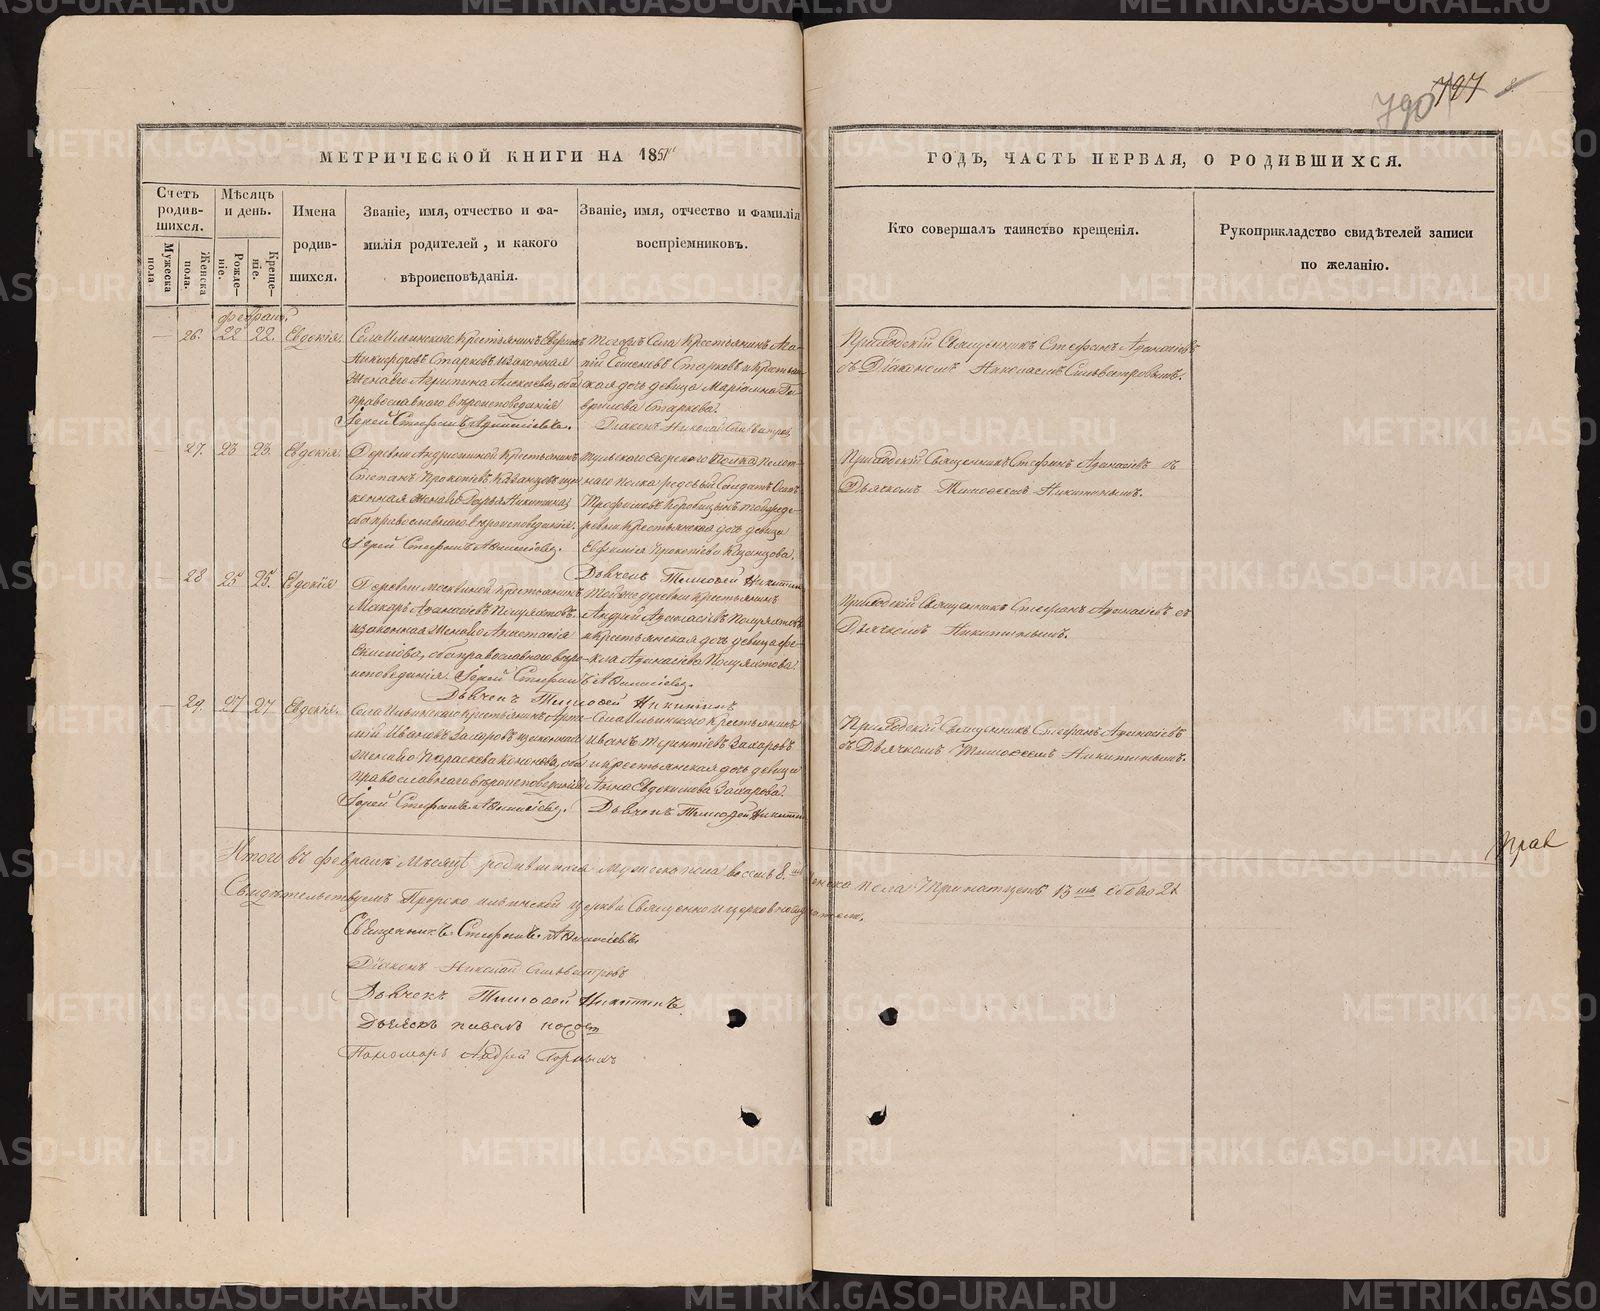 790 787
МЕТРИЧЕСКОЙ КНИГИ НА 1851
ГОДЪ, ЧАСТЬ ПЕРВАЯ, О РОДИВШИХСЯ.
Счетъ родив-шихся.
Мужеска пола.
Женска пола.
Мѣсяцъ и день.
Рожде-ніе.
Креще-ніе.
Имена
родив-
шихся.
Званіе, имя, отчество и фа-
милія родителей, и какого
вѣроисповѣданія.
Званіе, имя, отчество и фамилія
воспріемниковъ.
Кто совершалъ таинство крещенія.
Рукоприкладство свидѣтелей записи
по желанію.
26. 22 22. Евдокія.
Села Ильинскаго Крестьянинъ
Никифоровъ Старковъ и законная
жена его Агрипина Алексеева, оба
православнаго вѣроисповеданія
Іерей Стефанъ Аѳанасіевъ.
тогожъ Села Крестьянинъ Ага-
пій Семеновъ Старковъ и Крестьян-
ская дочь девица Маріамна Га-
врилова Старкова.
Діаконъ Николай Сильвестров
Приходскій Священникъ Стефанъ Аѳанасіевъ
съ Діакономъ Николаемъ Сильвестровымъ.
27. 23 23. Евдокія.
Деревни Андрюшиной Крестьянинъ
Степанъ Прокопіевъ Казанцовъ и за-
конная жена его Дарья Никитина,
оба православнаго вѣроисповѣданія.
Іерей Стефанъ Аѳанасіевъ.
Тульскаго Егерского Полка
наго полка рядовый Солдатъ Осипъ
Трофимовъ Коровицынъ той же де-
ревни Крестьянская дочь девица
Евфимія Прокопіева Казанцова.
Дьячекъ Тимофей Никитин
Приходскій Священникъ Стефанъ Аѳанасіевъ съ
Дьячкомъ Тимофеемъ Никитинымъ.
28 25 25. Евдокія
Деревни Москвиной Крестьянинъ
Макаръ Аѳанасіевъ Полуяхтовъ
и законная жена его Анастасія
Екимова, оба православнаго вѣро-
исповѣданія. Іерей Стефанъ Аѳанасіевъ.
Дьячекъ Тимофей Никитинъ
Той же деревни Крестьянинъ
Андрей Аѳанасіевъ Полуяхтовъ
и крестьянская дочь девица Ѳе-
кла Аѳанасіева Полуяхтова
Приходскій Священникъ Стефанъ Аѳанасіевъ съ
Дьячкомъ Никитинымъ.
29. 27 27 Евдокія.
Села Ильинскаго Крестьянинъ Арте-
мій Ивановъ Захаровъ и законная
жена его Параскева Кононова, оба
православнаго вѣроисповеданія
Іерей Стефанъ Аѳанасіевъ.
Села Ильинскаго Крестьянинъ
Иванъ Терентіевъ Захаровъ
и крестьянская дочь девица
Анна Евдокимова Захарова.
Дьячекъ Тимофей Никитин
Приходскій Священникъ Стефанъ Аѳанасіевъ
съ Дьячкомъ Тимофеемъ Никитинымъ.
Итого въ феврале мѣсяцѣ родившихся мужеска пола восемь 8. женска пола тринатцеть 13 обоего 21
Свидѣтельствуемъ Пророко ильинской церкви Священно и церковнослужители.
Священникъ Стефанъ Аѳанасіевъ.
Діаконъ Николай Сильвестровъ
Дьячекъ Тимофей Никитинъ
Дьячекъ павелъ
Пономарь Андрей Горныхъ
METRIKI.GASO-URAL.RU